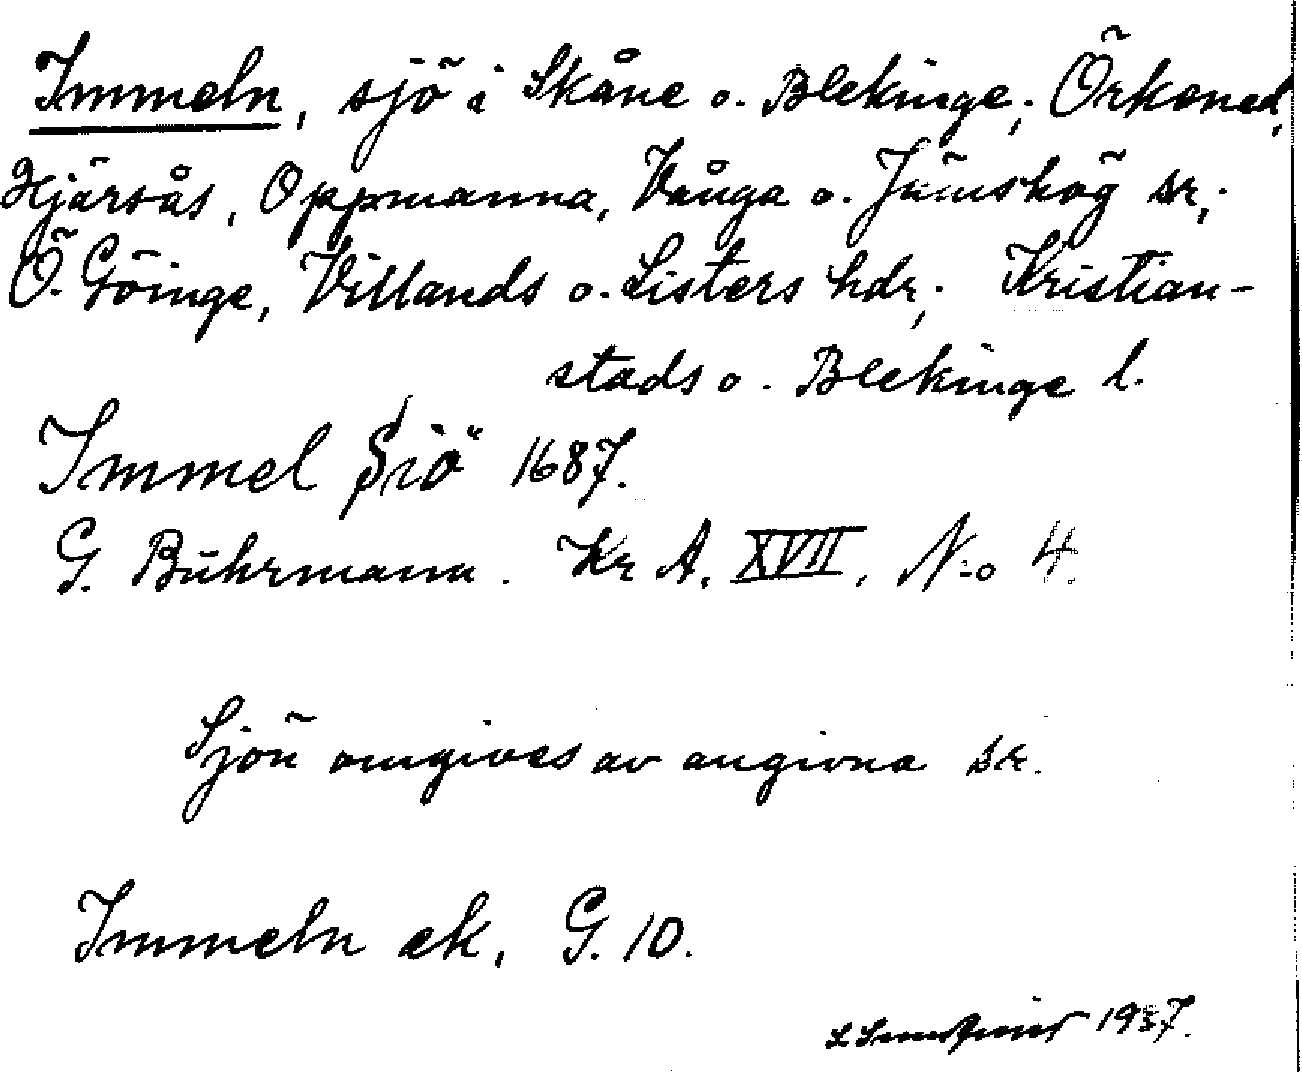 Immeln, sjö i Skåne o. Blekinge; Örkened,
Hjärsås, Oppmanna, Vånga o. Jämshög sr;
Ö. Göinge, Villands o. Listers hdr; Kristian-
stads o. Blekinge l.
Immel Siö 1687.
G. Buhrmann. Kr A. XVII, N:o 4.
Sjön omgives av angivna sr.
Immeln ek, G. 10.
1937.